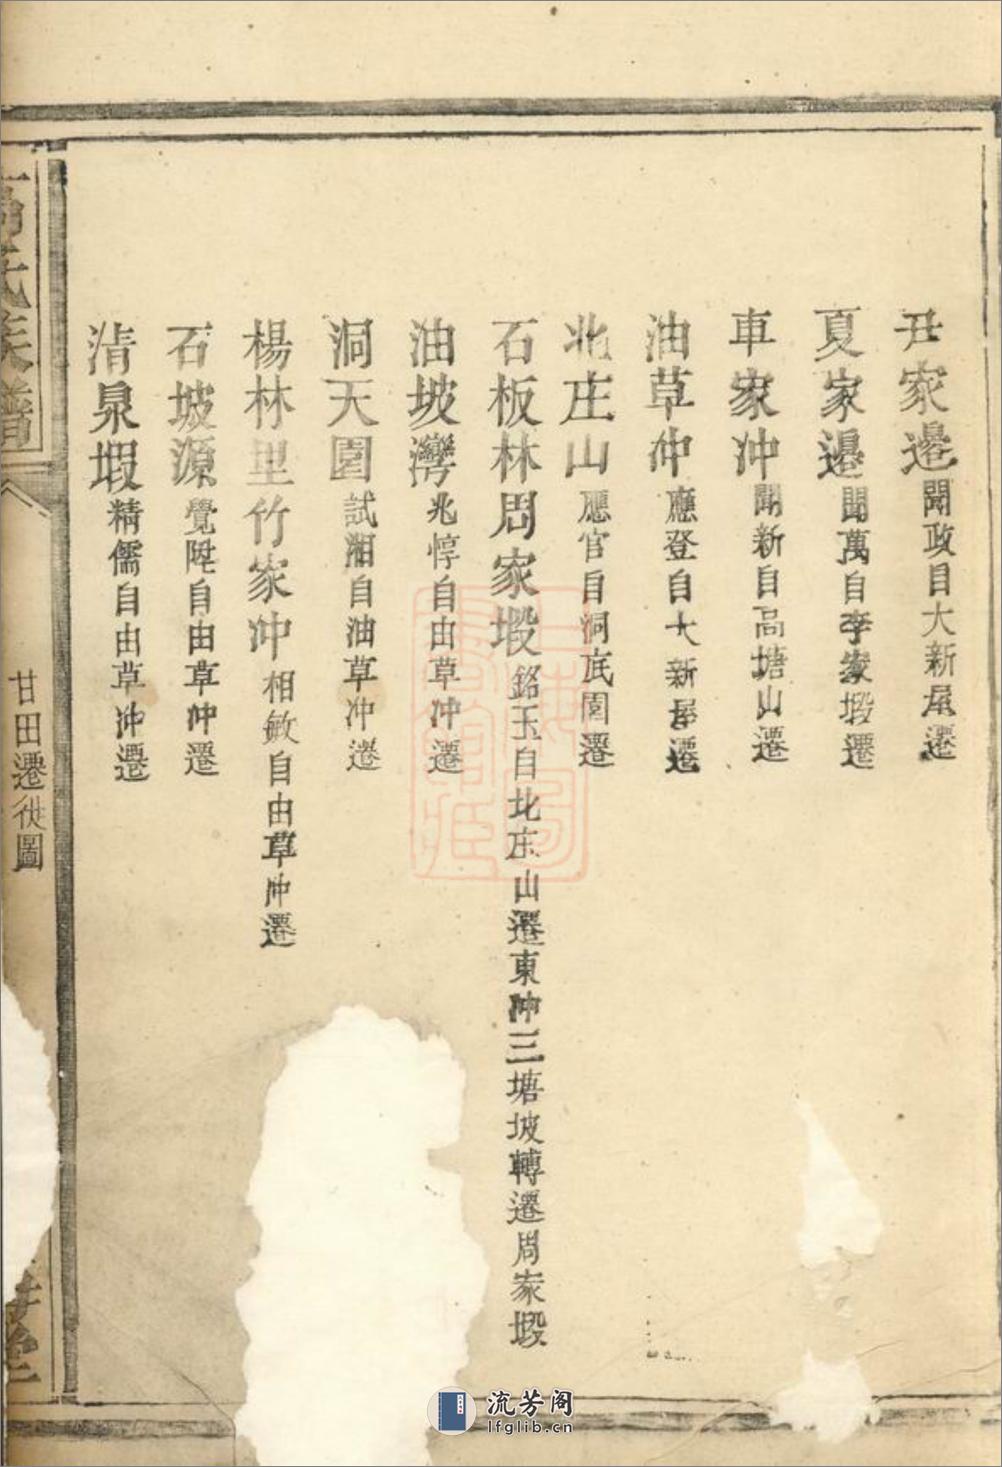 尹家邊聞政自大新屋遷
夏家邊聞萬自李家塅遷
車家冲聞新自高塘山遷
油草冲應登自大新屋遷
北庄山應官自洞底園遷
石板林周家塅銘玉自北庄山遷東冲三塘坡轉遷周家塅
油坡灣兆惇自由草冲遷
洞天園試湘自油草冲遷
楊林里竹家冲相敏自由草冲遷
石坡源覺陞自由草冲遷
清泉塅精儒自由草冲遷
氏族譜
甘田遷徙圖
堂
流芳阁
lfglib.cn